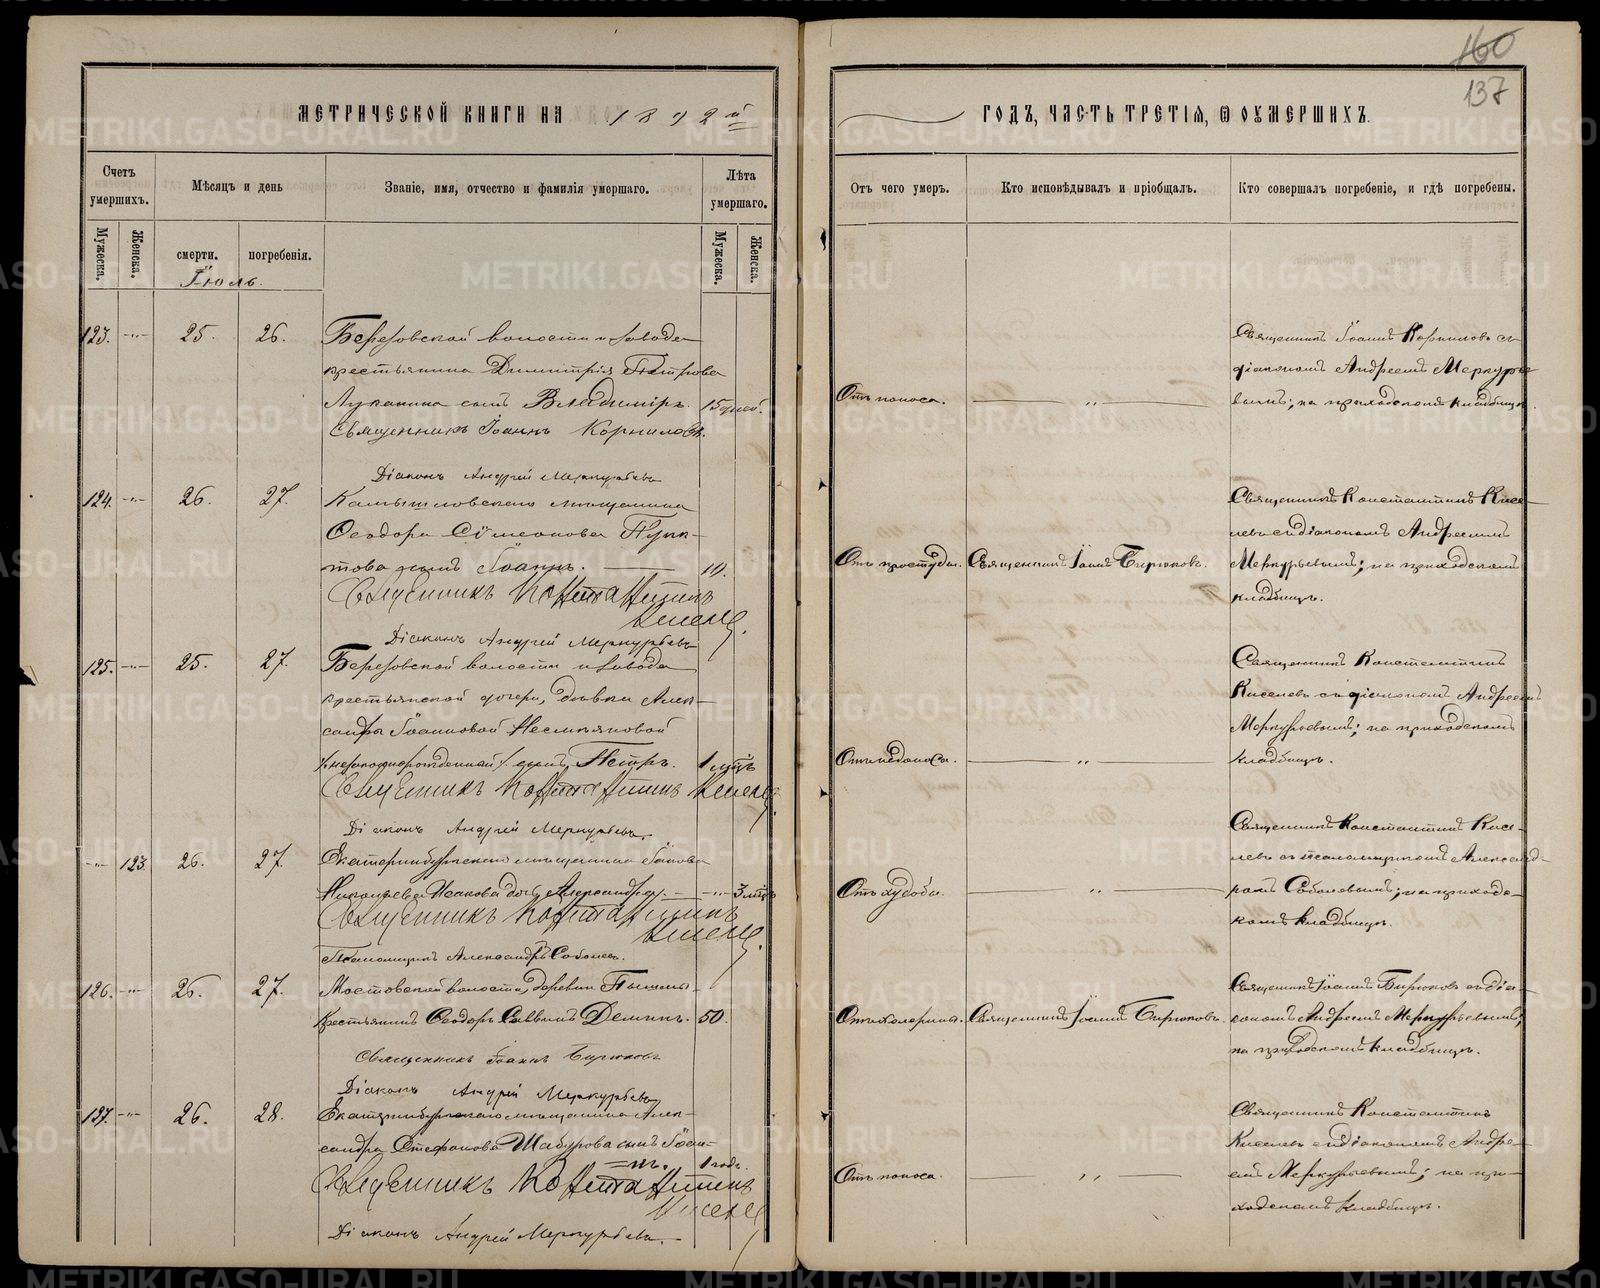 160
137
МЕТРИЧЕСКОЙ КНИГИ НА 1892й
ГОДЪ, ЧАСТЬ ТРЕТІЯ, Ѿ ОУМЕРШИХЪ.
Счетъ умершихъ.
Мѣсяцъ и день
Званіе, имя, отчество и фамилія умершаго.
Лѣта умершаго.
Отъ чего умеръ.
Кто исповѣдывалъ и пріобщалъ.
Кто совершалъ погребеніе, и гдѣ погребены.
Мужеска.
Женска.
смерти.
погребенія.
Мужеска.
Женска.
Іюль.
123. -"- 25. 26.
Березовской волости и завода
крестьянина Димитрія Петрова
Луканина сынъ Владиміръ. 15 дней.
Священникъ Іоаннъ Корниловъ.
Діаконъ Андрей Меркурьевъ
Отъ поноса. "
Священникъ Іоаннъ Корниловъ съ
діакономъ Андреемъ Меркурье-
вымъ; на приходскомъ кладбищѣ.
124. -"- 26. 27.
Камышловскаго мѣщанина
Ѳеодора Сѵмеонова
сынъ Іоаннъ. 10.
Священникъ Константинъ
Киселевъ.
Діаконъ Андрей Меркурьевъ
Отъ простуды. Священникъ Іоаннъ Бирюковъ.
Священникъ Константинъ Кисе-
левъ съ діакономъ Андреемъ
Меркурьевымъ; на приходскомъ
кладбищѣ.
125. -"- 25. 27.
Березовской волости и завода
крестьянской дочери, дѣвки Алек-
сандры Іоанновой
/незаконнорожденный/ сынъ Петръ. 1 мѣсяцъ
Священникъ Константинъ Киселевъ.
Діаконъ Андрей Меркурьевъ.
Отъ недоноса. "
Священникъ Константинъ
Киселевъ съ діакономъ Андреемъ
Меркурьевымъ; на приходскомъ
кладбищѣ.
-"- 123. 26. 27.
Екатеринбургскаго мѣщанина Іакова
Николаева Исакова дочь Александра. -"- 3 мѣс.
Священникъ Константинъ
Киселевъ.
Псаломщикъ Александръ Соболевъ.
Отъ худобы. "
Священникъ Константинъ Кисе-
левъ съ псаломщикомъ Александ-
ромъ Соболевымъ; на приходс-
комъ кладбищѣ.
126. -"- 26. 27.
Мостовской волости, деревни Пышмы
Крестьянинъ Ѳеодоръ Саввинъ Деминъ. 50.
Священникъ Іоаннъ Бирюковъ
Діаконъ Андрей Меркурьевъ
Отъ холерины. Священникъ Іоаннъ Бирюковъ.
Священникъ Іоаннъ Бирюковъ съ діа-
кономъ Андреемъ Меркурьевымъ;
на приходскомъ кладбищѣ.
127. -"- 26. 28.
Екатеринбургскаго мѣщанина Алек-
сандра Стефанова Шабурова сынъ Іоан-
нъ. 1 годъ.
Священникъ Константинъ
Киселевъ
Діаконъ Андрей Меркурьевъ.
Отъ поноса. "
Священникъ Константинъ
Киселевъ съ діакономъ Андре-
емъ Меркурьевымъ; на при-
ходскомъ кладбищѣ.
METRIKI.GASO-URAL.RU